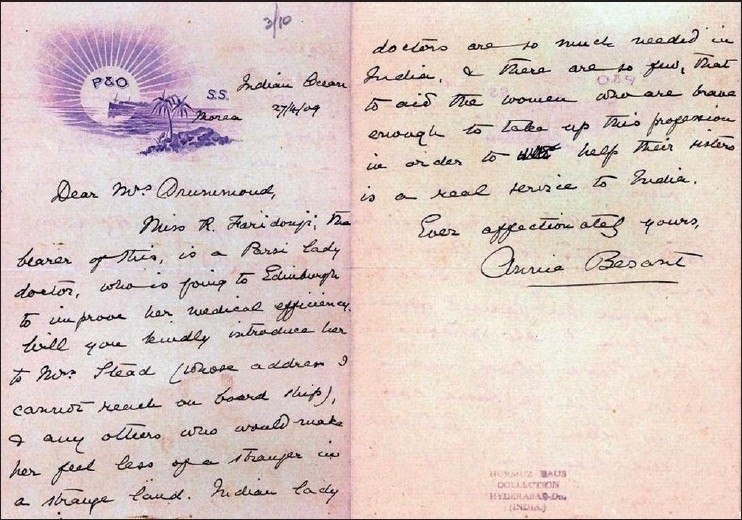 3/10
P&O
S.S.
Indian Ocean
Morea
27/4/09
Dear Mrs Drummond,
Miss R. Faridonji, the
bearer of this, is a Parsi lady
doctor, who is going to Edinburgh
to improve her medical efficiency.
Will you kindly introduce her
to Mrs Stead (whose address I
cannot reach on board ship),
& any others who would make
her feel less of a stranger in
a strange land. Indian lady
doctors are so much needed in
India, & there are so few, that
to aid the women who are brave
enough to take up this profession
in order to help their sisters
is a real service to India.
Ever affectionately yours,
Annie Besant
HURMUZ KAUS
COLLECTION
HYDERABAD-Dn.
(INDIA)